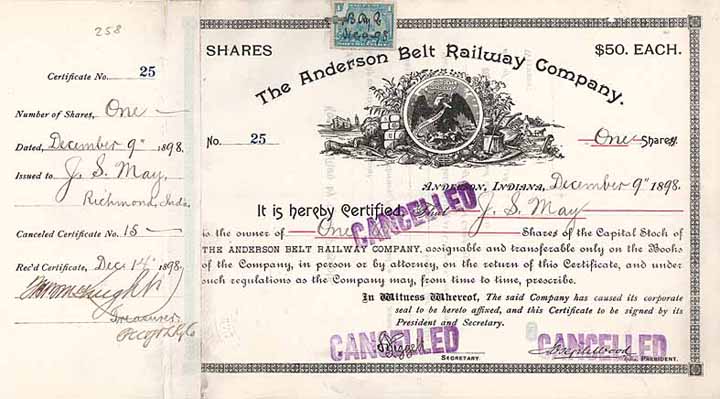 258
Certificate No. 25
Number of Shares, One
Dated, December 9" 1898.
Issued to J. S. May,
Richmond, Inda.
Canceled Certificate No. 15
Rec'd Certificate, Dec. 14" 1898
Treasurer
SHARES
$50. EACH.
The Anderson Belt Railway Company.
No. 25
One Shares
ANDERSON, INDIANA, December 9" 1898.
It is hereby Certified, That J. S. May
CANCELLED
is the owner of One Shares of the Capital Stock of
THE ANDERSON BELT RAILWAY COMPANY, assignable and transferable only on the Books
of the Company, in person or by attorney, on the return of this Certificate, and under
such regulations as the Company may, from time to time, prescribe.
In Witness Whereof, The said Company has caused its corporate
seal to be hereto affixed, and this Certificate to be signed by its
President and Secretary.
CANCELLED
CANCELLED
SECRETARY.
PRESIDENT.